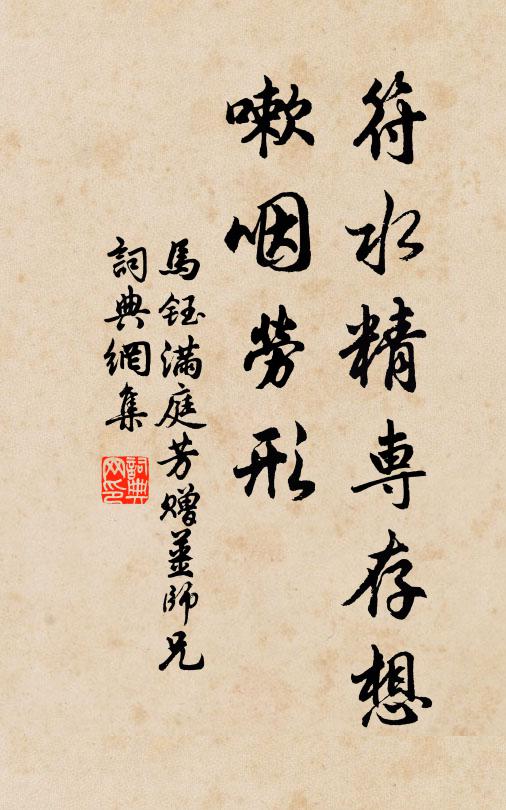 符水精専存想
嗽咽勞形
馬鈺滿庭芳贈姜師兄
詞典網集
詞典网印